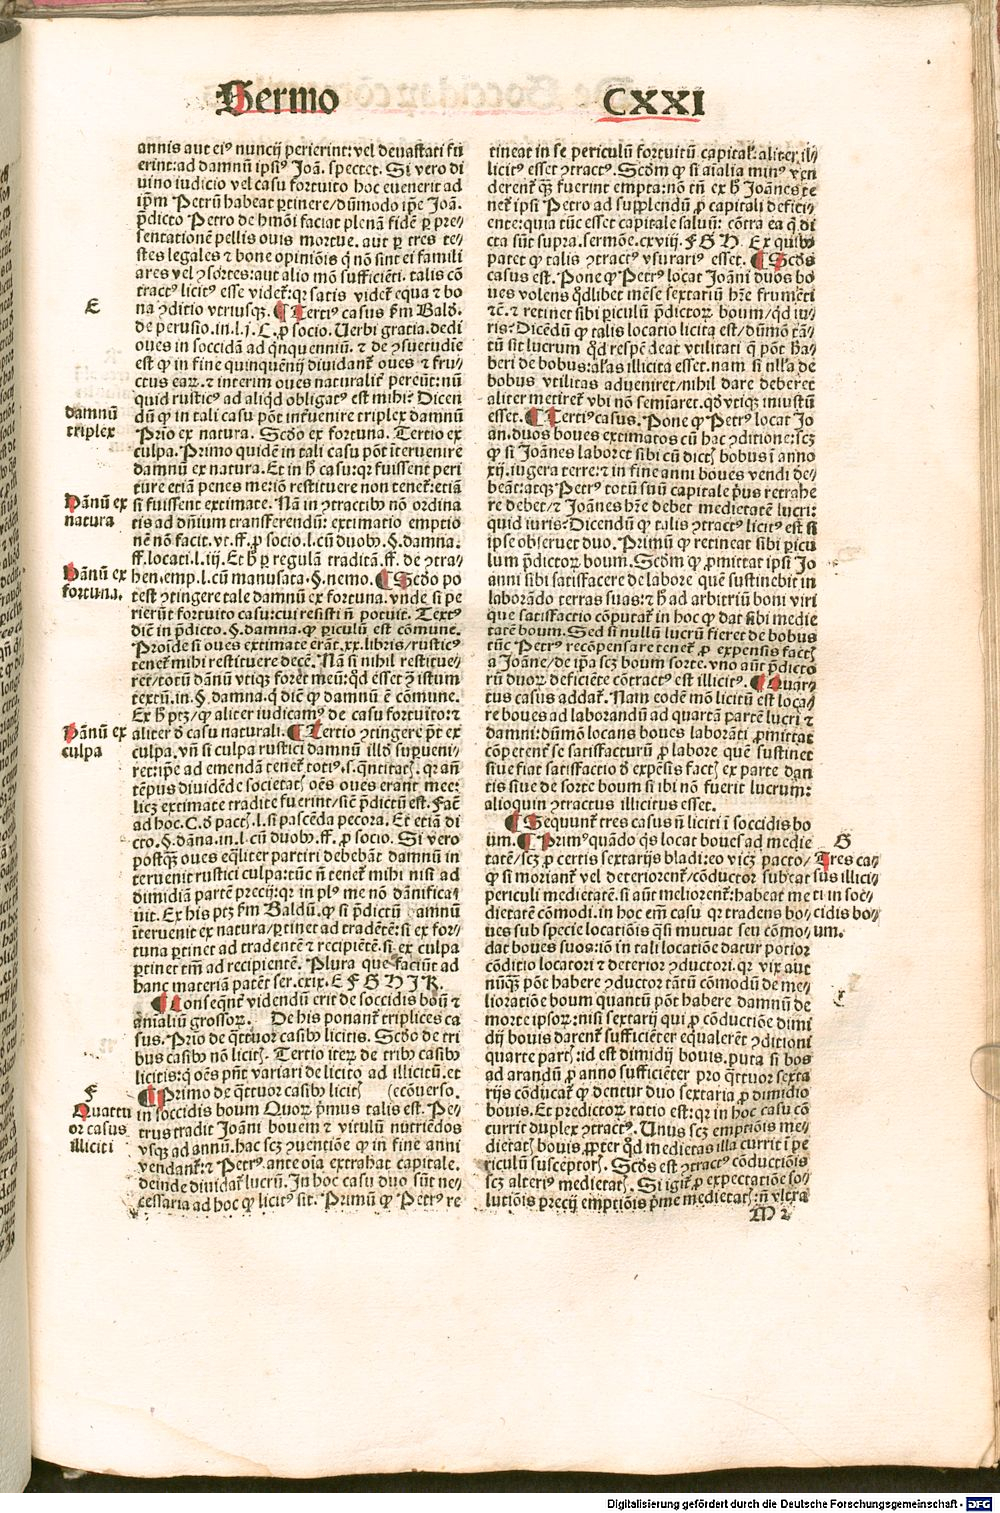 Sermo CXXI
annis aut eiꝰ nuncij perierint: vel deuastati fu
erint: ad damnū ipsiꝰ Joā. spectet. Si vero di
uino iudicio vel casu fortuito hoc euenerit ad
ip̄m Petrū habeat ꝑtinere / dūmodo ip̄e Joā.
p̄dicto Petro de hmōi faciat plenā fidē ꝑ pre⸗
sentationē pellis ouis mortue. aut ꝑ tres te⸗
stes legales ⁊ bone opiniōis q̇ nō sint ei famili
ares vel ꝯsortes: aut alio mō sufficiēti. talis cō
tractꝰ licitꝰ esse videt᷑: qr satis videt᷑ equa ⁊ bo
na ꝯditio vtriusqꝫ. ¶ Tertiꝰ casus ẜm Bald.
de perusio. in. l. j. C. ꝓ socio. Uerbi gratia. dedi
oues in soccidā ad qͥnquenniū. ⁊ de ꝯsuetudie
est ꝙ in fine quinquenij diuidant᷑ oues ⁊ fru⸗
ctus eaꝝ. ⁊ interim oues naturalit᷑ pereūt: nū
quid rusticꝰ ad aliqd obligatꝰ est mihi? Dicen
dū ꝙ in tali casu pōt int᷑uenire triplex damnū
Prīo ex natura. Scd̄o ex fortuna. Tertio ex
culpa. Primo quidē in tali casu pōt īteruenire
damnū ex natura. Et in h̄ casu: qr fuissent peri
ture etiā penes me: iō restituere non tenet᷑: etiā
si fuissent extimate. Nā in ꝯtractibꝰ nō ordina
tis ad dn̄ium transferendū: extimatio emptio
nē nō facit. vt. ff. ꝓ socio. l. cū duobꝰ. §. damna.
ff. locati. l. iij. Et h̄ ꝑ regulā traditā. ff. de ꝯtra⸗
hen. emp. l. cū manusata. §. nemo. ¶ Scd̄o po
test ꝯtingere tale damnū ex fortuna. vnde si pe
rierūt fortuito casu: cui resisti nō potuit. Textꝰ
diē in p̄dicto. §. damna. ꝙ ꝑiculū est cōmune.
Proīde si oues extimate erāt. xx. libris / rusticꝰ
tenet᷑ mihi restituere decē. Nā si nihil restitue⸗
ret / totū dānū vtiqꝫ foret meū: qd̄ esset ꝯ istum
textū. in. §. damna. q̇ diē ꝙ damnū ē cōmune.
Ex h̄ ptꝫ / ꝙ aliter iudicamꝰ de casu fortuito: ⁊
aliter d̄ casu naturali. ¶ Tertio ꝯtingere pt̄ ex
culpa. vn̄ si culpa rustici damnū illd̄ supueni⸗
ret: ip̄e ad emendā tenet᷑ totiꝰ. s. qͣntitatꝭ. qr an̄
tēpus diuidēde societatꝭ oēs oues erant mee:
licꝫ extimate tradite fuerint / siē p̄dictū est. Facͭ
ad hoc. C. d̄ pactꝭ. l. si pascēda pecora. Et etiā di
cto. §. dāna. in. l. cū duobꝰ. ff. ꝓ socio. Si vero
postqꝫ oues eq̄liter partiri debebāt damnū in
teruenit rustici culpa: tūc n̄ tenet᷑ mihi nisi ad
dimidiā partē precij: qr in plꝰ me nō dānifica⸗
uit. Ex his ptꝫ ẜm Baldū. ꝙ si p̄dictū damnū
īteruenit ex natura / ꝑtinet ad tradētē: si ex for⸗
tuna ꝑtinet ad tradentē ⁊ recipiētē. si ex culpa
ꝑtinet tm̄ ad recipientē. Plura que faciūt ad
hanc materiā patēt ser. cxix. E F G H J K.
¶ Consequēt᷑ videndū erit de soccidis boū ⁊
aīaliū grossoꝝ. De his ponant᷑ triplices ca
sus. Prīo de qͣttuor casibꝰ licitis. Scd̄o de tri
bus casibꝰ nō licitꝭ. Tertio iteꝝ de tribꝰ casibꝰ
licitis: q̇ oēs pn̄t variari de licito ad illicitū. et
¶ Primo de qͣttuor casibꝰ licitꝭ (ecōuerso.
in soccidis boum Quoꝝ p̄mus talis est. Pe⸗
trus tradit Joāni bouem ⁊ vitulū nutriēdos
vsqꝫ ad annū. hac scꝫ ꝯuentiōe ꝙ in fine anni
vendant᷑: ⁊ Petrꝰ ante oīa extrahat capitale.
deinde diuidat᷑ lucrū. In hoc casu duo sūt ne⸗
cessaria ad hoc ꝙ licitꝰ sit. Primū ꝙ Petrꝰ re
E
damnū
triplex
Dānū ex
natura
Dānū ex
fortuna.
Dānū ex
culpa
F
Quattu
or casus
illiciti
tineat in se periculū fortuitū capital᷑. aliter il⸗
licitꝰ esset ꝯtractꝰ. Scd̄m ꝙ si aīalia minꝰ ven
derent᷑ qͣꝫ fuerint empta: nō tn̄ ex h̄ Joānes te
net᷑ ipsi Petro ad supplendū ꝓ capitali defici⸗
ente: quia tūc esset capitale saluū: cōtra ea q̄ di
cta sūt supra. sermōe. cxviij. F G H. Ex quibꝰ
patet ꝙ talis ꝯtractꝰ vsurariꝰ esset. ¶ Scd̄s
casus est. Pone ꝙ Petrꝰ locat Joāni duos bo
ues volens qd̄libet mēse sextariū hr̄e frumēti
⁊c̄. ⁊ retinet sibi ꝑiculū p̄dictoꝝ boum / qd iu⸗
ris? Dicēdū ꝙ talis locatio licita est / dūmō tā⸗
tū sit lucrum qd̄ respōdeat vtilitati q̄ pōt ha⸗
beri de bobus: alʼas illicita esset. nam si nlla de
bobus vtilitas adueniret / nihil dare deberet
aliter metiret᷑ vbi nō semīaret. qd̄ vtiqꝫ iniustū
esset. ¶ Tertiꝰ casus. Pone ꝙ Petrꝰ locat Jo
an. duos boues extimatos cū hac ꝯditione: scꝫ
ꝙ si Joānes laboret sibi cū dictꝭ bobus ī anno
xij. iugera terre: ⁊ in fine anni boues vendi de⸗
beāt: atqꝫ Petrꝰ totū suū capitale p̄us retrahe
re debet / ⁊ Joānes hr̄e debet medietatē lucri:
quid iuris? Dicendū ꝙ talis ꝯtractꝰ licitꝰ est si
ipse obseruet duo. Primū ꝙ retineat sibi ꝑicu
lum p̄dictoꝝ boum. Scd̄m ꝙ ꝓmittat ipsi Jo
anni sibi satisfacere de labore quē sustinebit in
laborādo terras suas: ⁊ h̄ ad arbitriū boni viri
que satisfactio cōputat᷑ in hoc ꝙ dat sibi medie
tatē boum. Sed si nullū lucrū fieret de bobus
tūc Petrꝰ recōpensare tenet᷑ ꝓ expensis factꝭ
a Joāne / de ip̄a scꝫ boum sorte. vno aūt p̄dicto
rū duoꝝ deficiēte cōtractꝰ est illicitꝰ. ¶ Quar⸗
tus casus addat᷑. Nam eodē mō licitū est loca⸗
re boues ad laborandū ad quartā partē lucri ⁊
damni: dūmō locans boues laborāti ꝓmittat
cōpetent᷑ se satisfacturū ꝓ labore quē sustinet
siue fiat satisfactio d̄ expēsis factꝭ ex parte dan
tis siue de sorte boum si ibi nō fuerit lucrum:
alioquin ꝯtractus illicitus esset.
¶ Sequunt᷑ tres casus n̄ liciti ī soccidis bo
um. ¶ Primꝰ quādo qͥs locat boues ad medie
tatē / scꝫ ꝓ certis sextarijs bladi: eo vicꝫ pacto /
ꝙ si moriant᷑ vel deteriorent᷑ / cōductor subeat
periculi medietatē. si aūt meliorent᷑: habeat me
dietatē cōmodi. in hoc em̄ casu qr tradens bo⸗
ues sub specie locatiōis qͣsi mutuat seu cōmo⸗
dat boues suos: iō in tali locatiōe datur potior
cōditio locatori ⁊ deterior ꝯductori. qr vix aut
nūqꝫ pōt habere ꝯductor tātū cōmodū de me⸗
lioratiōe boum quantū pōt habere damnū de
morte ipsoꝝ: nisi sextarij qui ꝓ cōductiōe dimi
dij bouis darent᷑ sufficiēter equalerēt ꝯditioni
quarte partꝭ: id est dimidij bouis. puta si bos
ad arandū ꝓ anno sufficiēter pro qͣttuor sexta
rijs cōducat᷑ ꝙ dentur duo sextaria ꝓ dimidio
bouis. Et predictoꝝ ratio est: qr in hoc casu cō
currit duplex ꝯtractꝰ. Unus scꝫ emptiōis me⸗
dietatꝭ bouis. ꝓpter qd̄ medietas illa currit ī pe
riculū susceptorꝭ. Scd̄s est ꝯtractꝰ cōductiōis
scꝫ alteriꝰ medietatꝭ. Si igit᷑ ꝓ expectatiōe so⸗
lutiōis precij emptiōis p̄me medietatꝭ: n̄ vltra
M 2
G
Tres ca⸗
sus illici⸗
ti in soc⸗
cidis bo⸗
um.
Digitalisierung gefördert durch die Deutsche Forschungsgemeinschaft - DFG